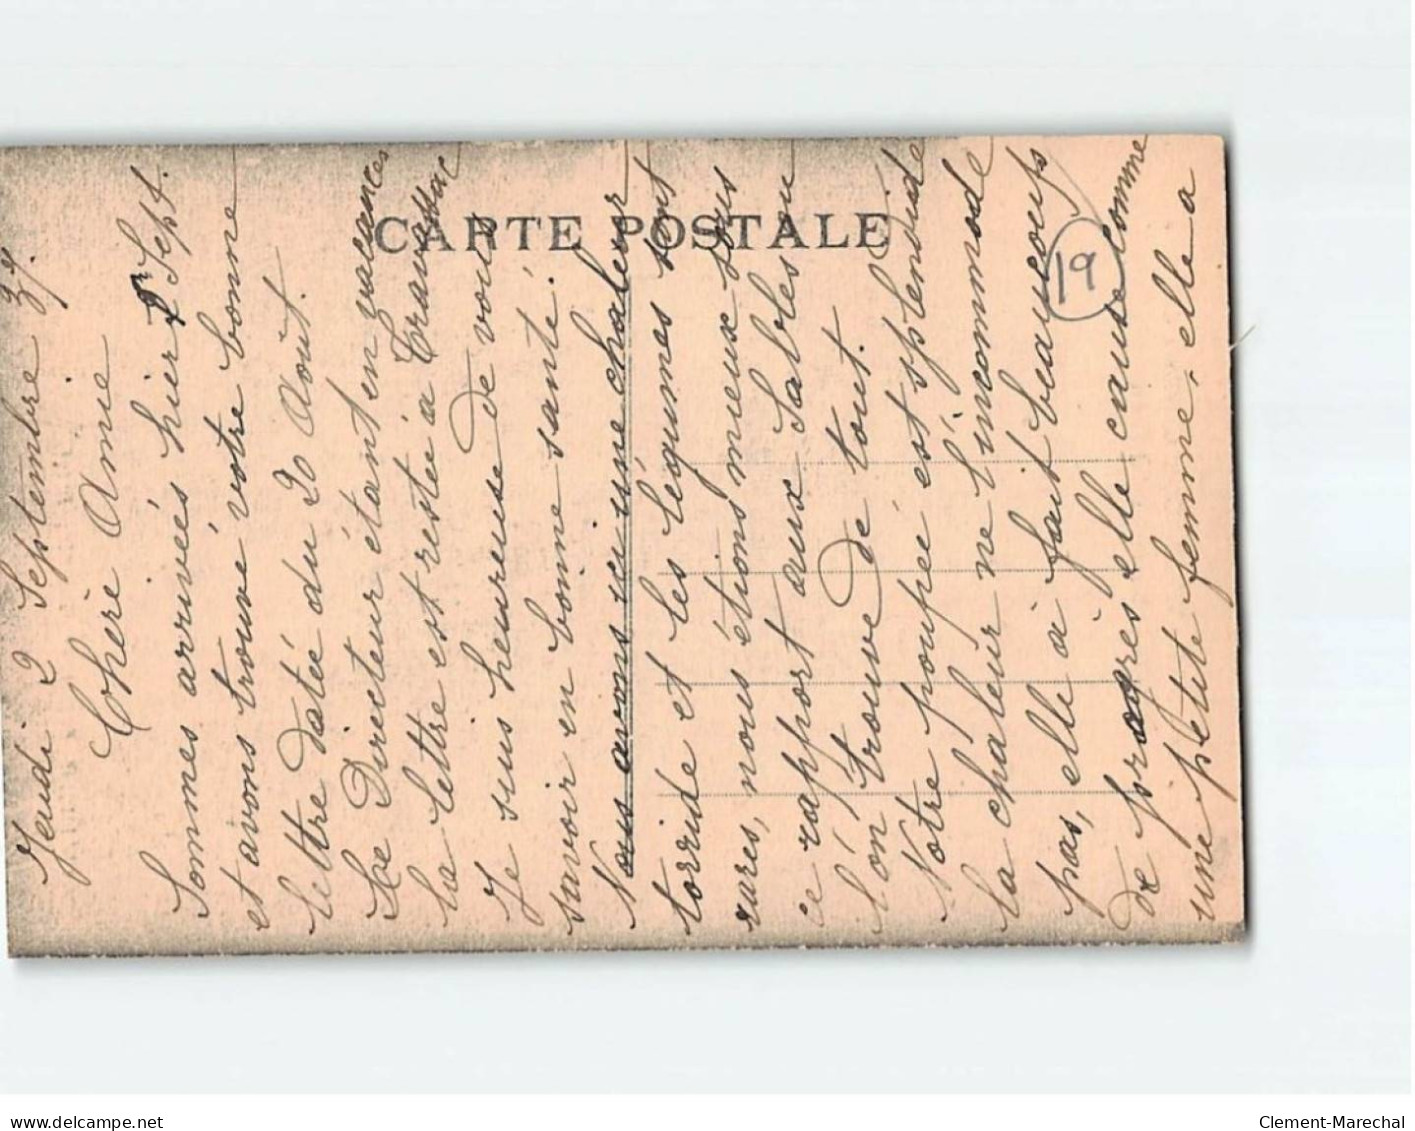 CARTE POSTALE
19
Jeudi 2 Septembre 37.
Chère Amie
Sommes arrivées hier 1er Sept.
et avons trouvé votre bonne
lettre datée du 20 Août.
Le Directeur étant en vacances
la lettre est restée à Travassac
Je suis heureuse de vous
savoir en bonne santé.
Nous avons ici une chaleur
torride et les légumes sont
rares, nous étions mieux sous
ce rapport aux Sables ou
l'on trouve de tout.
Notre poupée est splendide
la chaleur ne l'incommode
pas, elle à fait beaucoups
de progrès elle cause comme
une petite femme, elle a
www.delcampe.net
Clement-Marechal